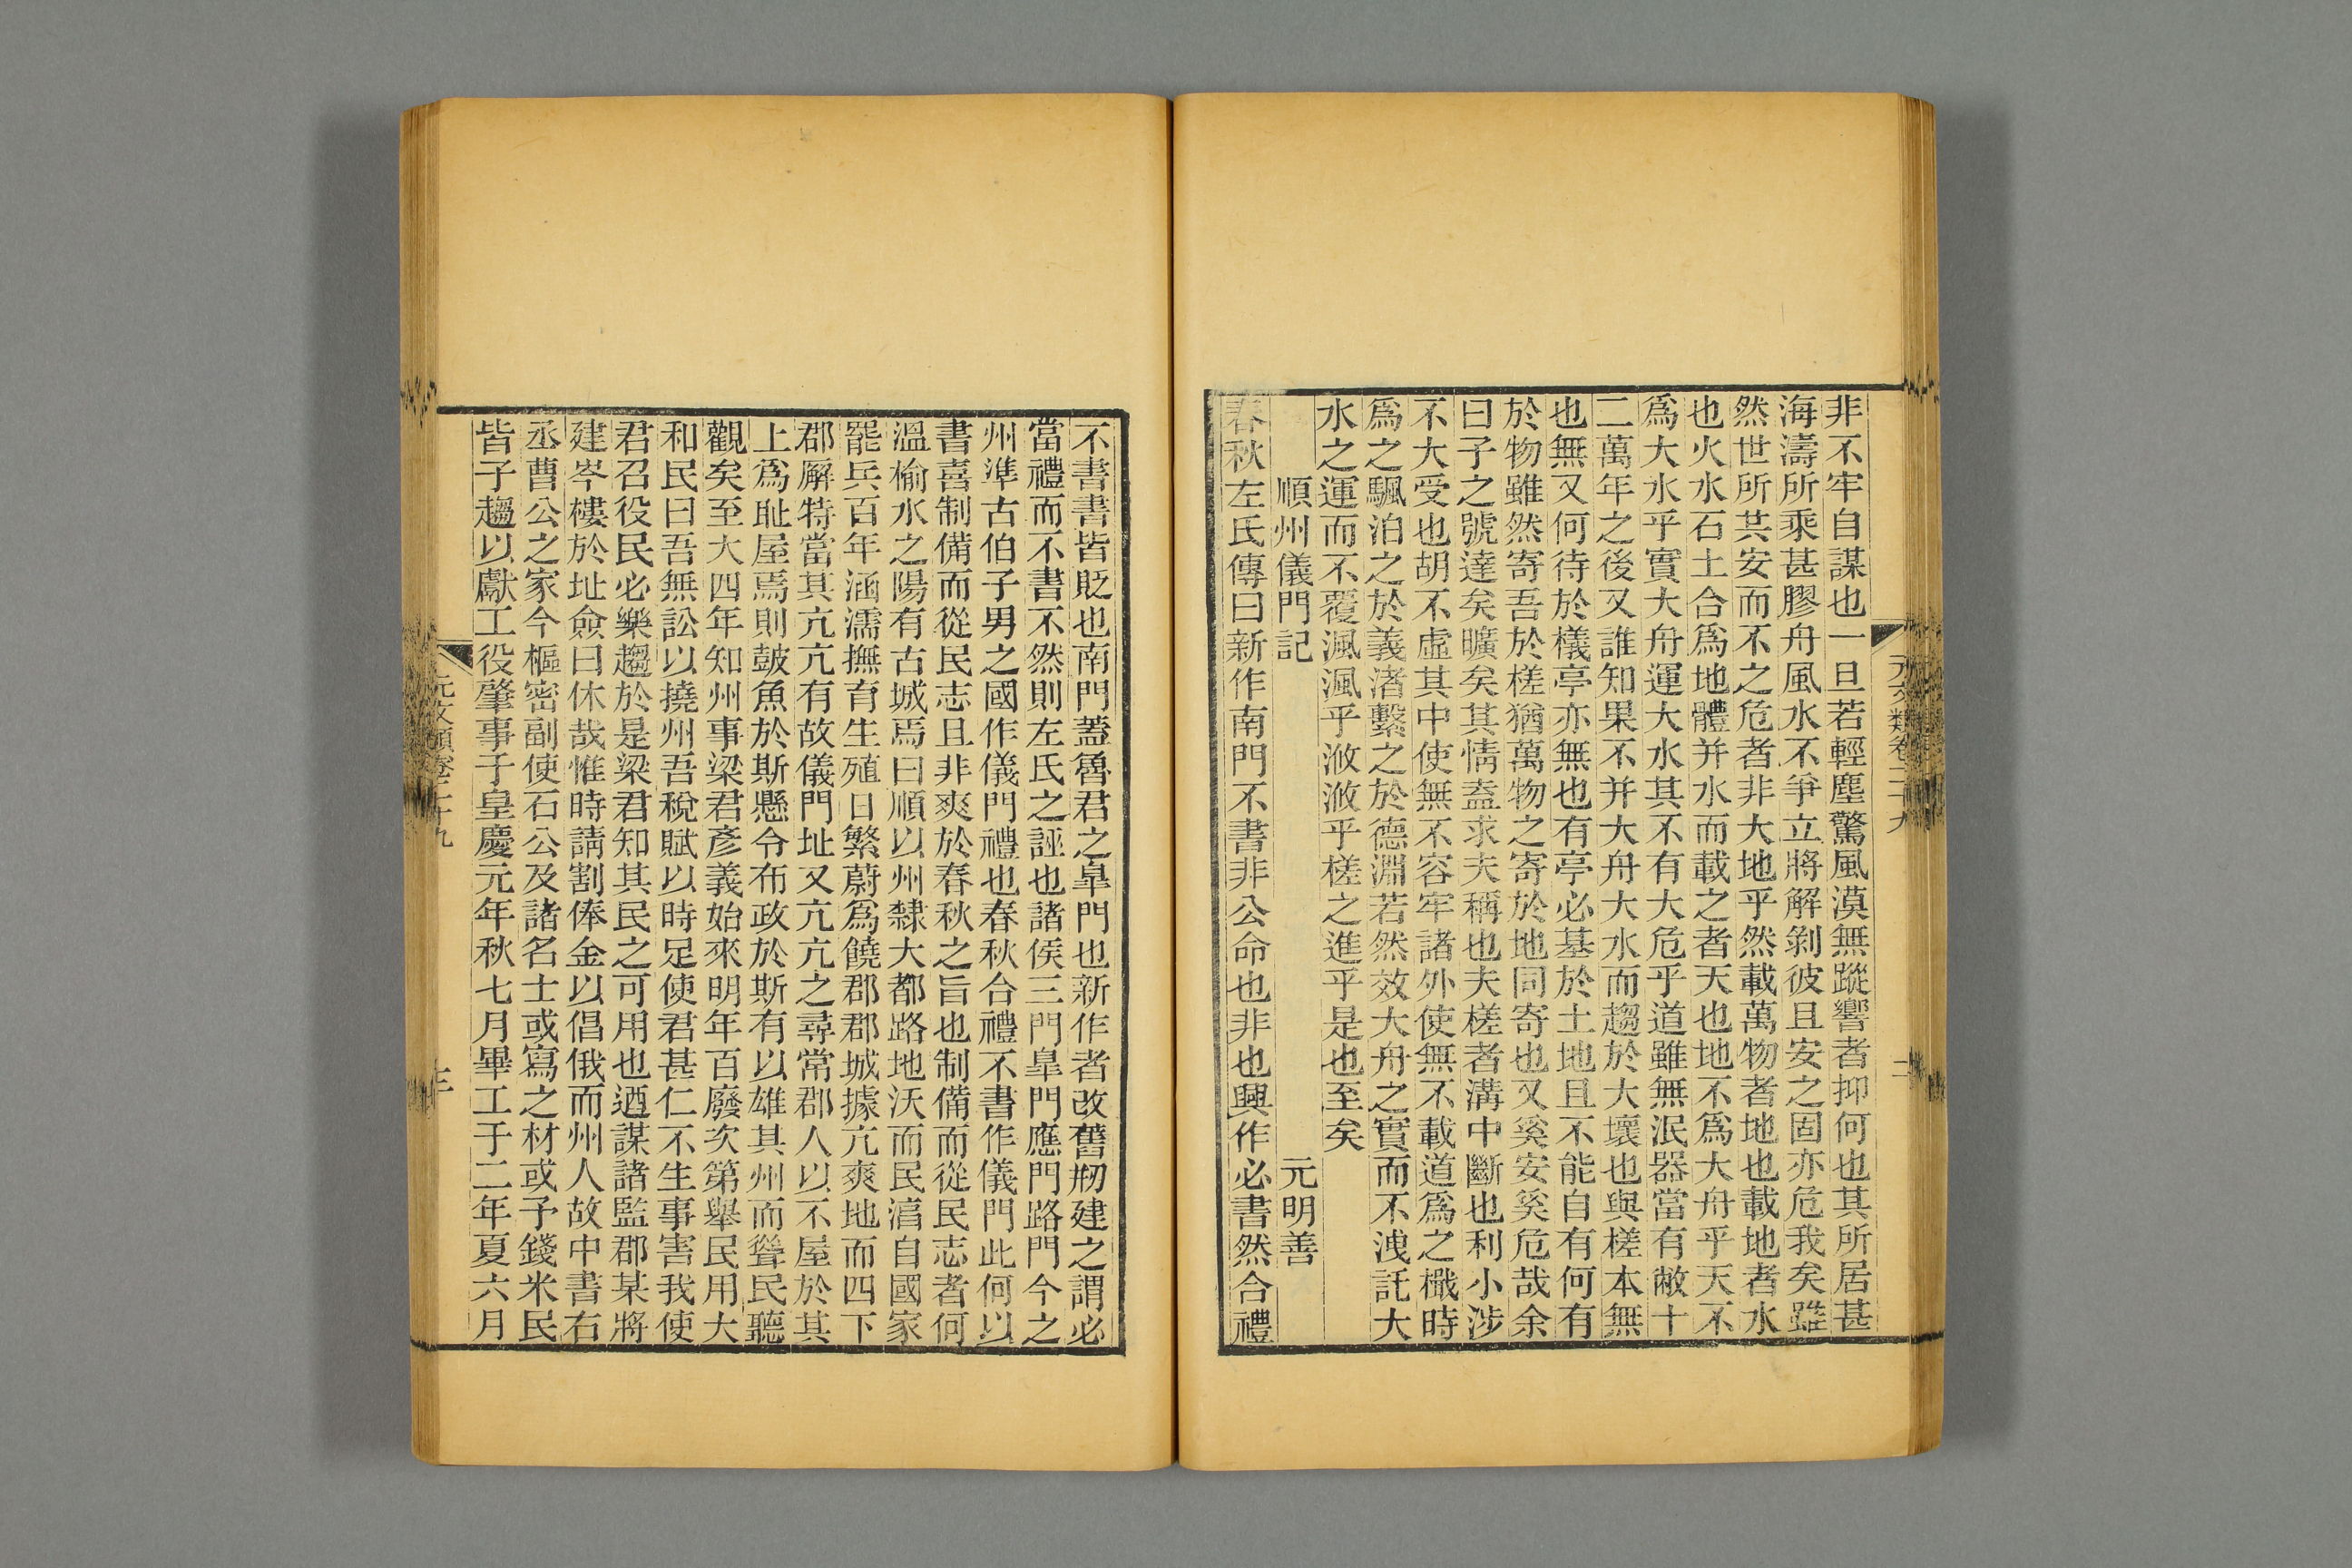 非不牢自謀也一旦若輕塵驚風漠無蹤響者抑何也其所居甚
海濤所乘甚膠舟風水不爭立將解剝彼且安之固亦危我矣雖
然世所共安而不之危者非大地乎然載萬物者地也載地者水
也火水石土合爲地體并水而載之者天也地不爲大舟乎天不
爲大水乎實大舟運大水其不有大危乎道雖無泯器當有敝十
二萬年之後又誰知果不并大舟大水而趨於大壞也與槎本無
也無又何待於檥亭亦無也有亭必基於土地且不能自有何有
於物雖然寄吾於槎猶萬物之寄於地同寄也又奚安奚危哉余
曰子之號達矣曠矣其情蓋求夫稱也夫槎者溝中斷也利小涉
不大受也胡不虛其中使無不容牢諸外使無不載道爲之檝時
爲之颿泊之於義渚繫之於德淵若然效大舟之實而不洩託大
水之運而不覆渢渢乎浟浟乎槎之進乎是也至矣
順州儀門記 元明善
春秋左氏傳曰新作南門不書非公命也非也興作必書然合禮
元文類卷二十九 二
不書書皆貶也南門蓋魯君之臯門也新作者改舊剏建之謂必
當禮而不書不然則左氏之誣也諸侯三門臯門應門路門今之
州準古伯子男之國作儀門禮也春秋合禮不書作儀門此何以
書喜制備而從民志且非爽於春秋之旨也制備而從民志者何
溫榆水之陽有古城焉曰順以州隸大都路地沃而民滀自國家
罷兵百年涵濡撫育生殖日繁蔚爲饒郡郡城據亢爽地而四下
郡廨特當其亢亢有故儀門址又亢亢之尋常郡人以不屋於其
上爲恥屋焉則皷魚於斯懸令布政於斯有以雄其州而聳民聽
觀矣至大四年知州事梁君彥義始來明年百廢次第舉民用大
和民曰吾無訟以撓州吾稅賦以時足使君甚仁不生事害我使
君召役民必樂趨於是梁君知其民之可用也迺謀諸監郡某將
建岑樓於址僉曰休哉惟時請割俸金以倡俄而州人故中書右
丞曹公之家今樞密副使石公及諸名士或寫之材或予錢米民
皆子趨以獻工役肇事子皇慶元年秋七月畢工于二年夏六月
元文類卷二十九 三